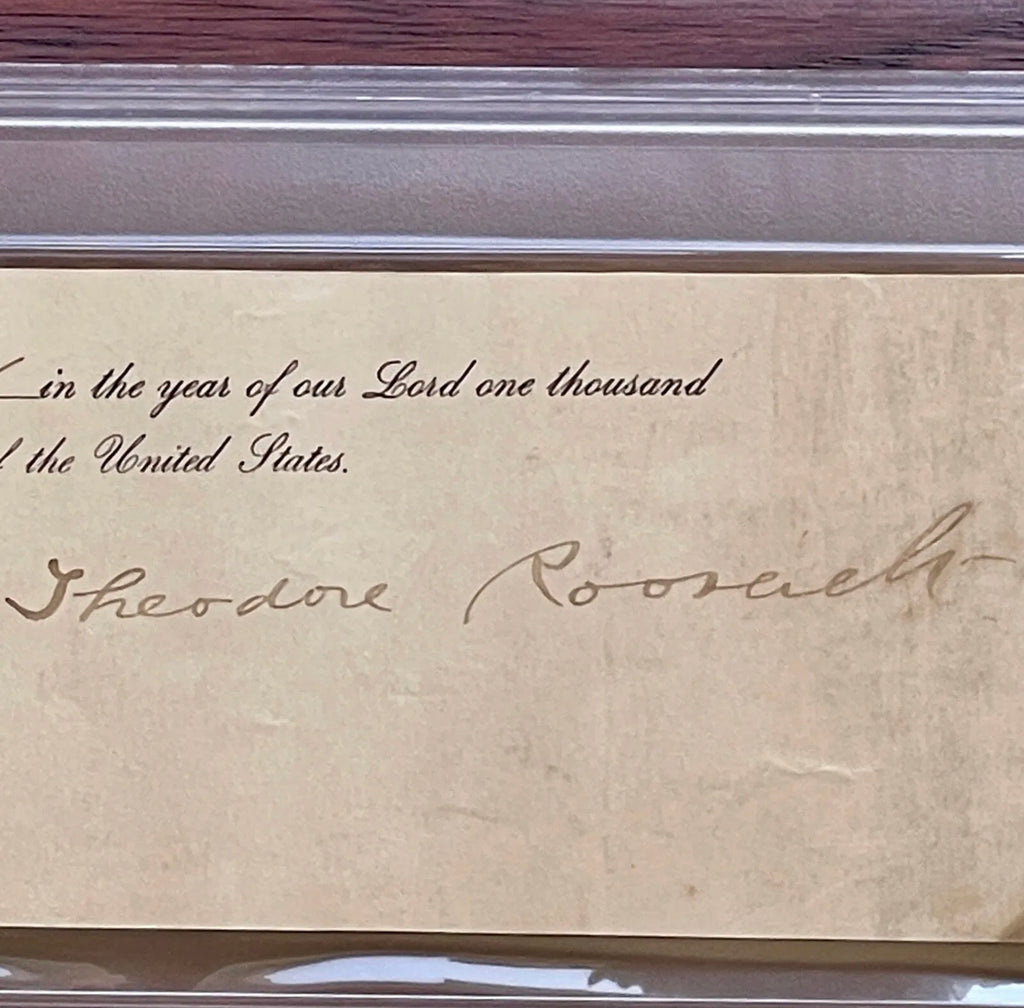 in the year of our Lord one thousand
the United States.
Theodore Roosevelt